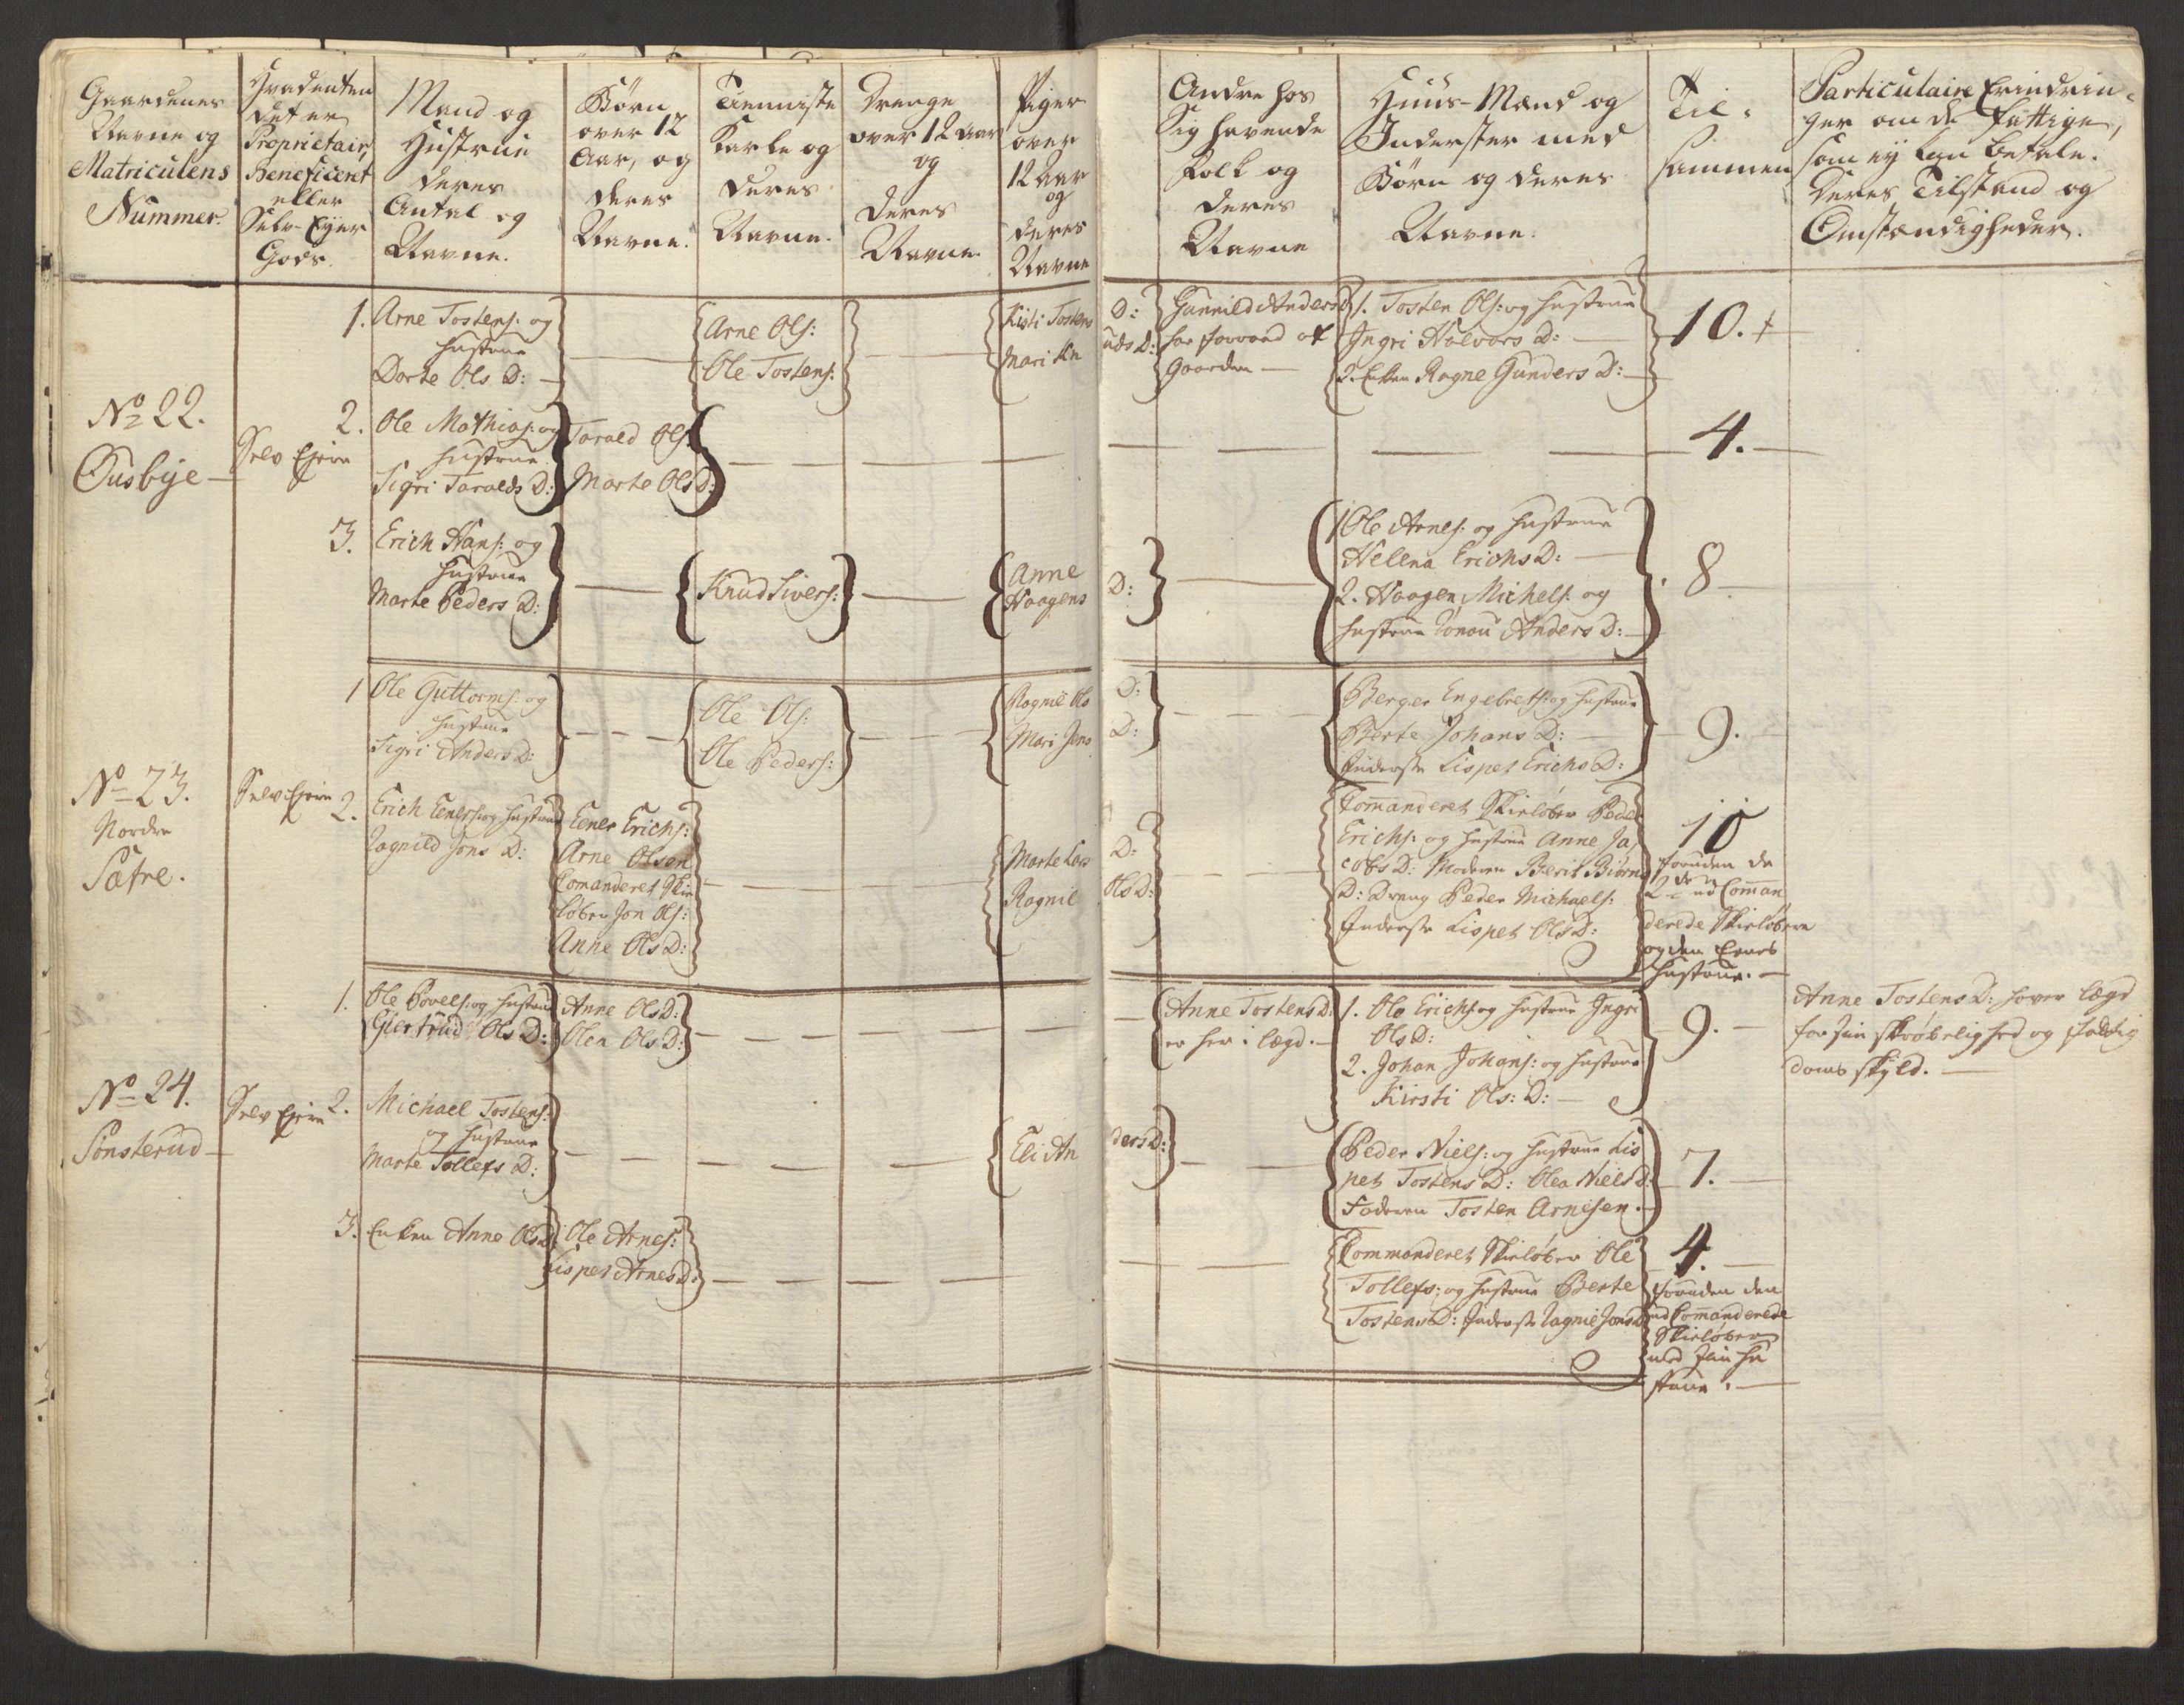 Gaardenes
Navne og
Matriculens
Nummer.
Hvadenten
det er
Proprietair,
Beneficeret
eller
Selv-Eyer
Gods.
Mand og
Hustrue
deres
Antal og
Navne.
Börn
over 12
Aar, og
deres
Navne.
Tienniste
Karle og
deres
Navne.
Drenge
over 12 Aar
og
deres
Navne.
Piger
over
12 Aar
og
deres
Navne
Andre hos
sig havende
Folk og
deres
Navne
Huus-Mænd og
Inderster med
Börn og deres
Navne.
Til-
sammen
Particulaire Erindrin-
ger om de fattige,
som ey kan betale.
Deres Tilstand og
Omstændigheder.
No 22.
Ousbye
Selv Ejere
1. Arne Tostens: og
Hustrue
Dorte Ols D:
Arne Ols:
Ole Tostens:
Kisti Tostens D:
Mari Knuds D:
Gunnild Anders D
for forraad af
Gaarden
1. Tosten Ols: og Hustrue
Ingri Halvors D:
2. Enken Ragne Gunders D:
10.
2. Ole Mathias: og
Hustrue
Sigri Taralds D:
Tarald Ols:
Marte Ols D:
4.
3. Erich Hans: og
Hustrue
Marte Peders D:
Knud Sivers:
Anne
Haagens D:
1 Ole Arnes: og Hustrue
Helena Erichs D:
2. Haagen Michels: og
Hustrue Anders D:
8
No 23.
Nordre
Sätre.
Selv Ejere
1 Ole Guttorms: og
Hustrue
Sigri Anders D:
Ole Ols:
Ole Peders:
Ragnil Ols D:
Mari Jens D:
Berger Engebrets: og Hustrue
Berte Johans D:
Inderste Lispet Erichs D:
9.
2. Erich Eeners: og Hustrue
Ragnild Jons D:
Eener Erichs:
Arne Olsen
Comanderet Skie
løber Jon Ols:
Anne Ols D:
Marte Lars D:
Ragnil Ols D:
Commanderet Skieløber Peder
Erichs: og Hustrue Anne Ja
cobs D: Moderen Berit Biørns
D: Dreng Peder Michaels:
Inderste Lispet Ols D:
10
foruden de
2de ud Comman
derede Skieløbere
og den Eenes
Hustrue.
No 24.
Sönsterud
Selv Ejere
1. Ole Povels: og Hustrue
Giertrud Ols D:
Anne Ols D:
Olea Ols D:
Anne Tostens D:
er her i Lægd.
1. Ole Erichs: og Hustrue Ingri
Ols D:
2. Johan Johans: og Hustrue
Kirsti Ols: D:
9.
Anne Tostens D: haver Lægd
for sin skrøbelighed og fattig
doms skyld.
2. Michael Tostens:
og Hustrue
Marte Tollefs D:
Eli Anders D:
Peder Niels: og Hustrue Lis
pet Tostens D: Olea Niels D:
Faderen Tosten Arnesen.
7.
3. Enken Anne Ols D:
Ole Arnes:
Lispet Arnes D:
Commanderet Skieløber Ole
Tollefs: og Hustrue Berte
Tostens D: Inderste Ragnil Jons D
4.
foruden den
ud Commanderede
Skieløber
med sin Hu
strue.